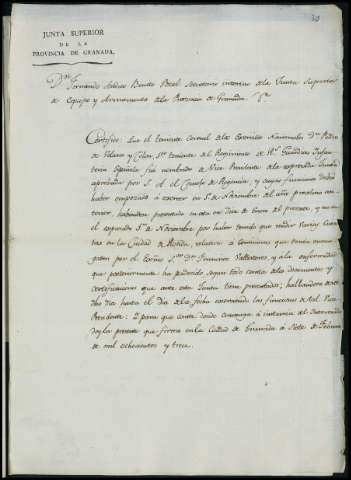 30
JUNTA SUPERIOR
DE LA
PROVINCIA DE GRANADA.
Dn. Fernando Benito Secretario interino de la Junta Superior
de equipo y Armamento de la Provincia de Granada &c.
Certifico: Que el teniente Coronel de los Exercitos Nacionales Dn. Pedro
de y Colon, 1er. teniente del Regimiento de Rs. Guardias Infan
teria Española fué nombrado de Vice Presidente de la expresada Junta
aprobado por S. A. el Consejo de Regencia, y cuyas funciones devió
haber empezado a exercer en 5 de Noviembre del año proximo an
terior, habiendose presentado en esta en dias de Enero del presente, y no en
el expresado 5 de Noviembre por haber tenido que rendir varias Cuen
tas en la Ciudad de Merida, relativas a comisiones que tenia encar
gadas por el Exmo. Sor. Dn. Francisco Vallesteros, y a la enfermedad
que posteriormente ha padecido, segun todo consta de los documentos y
certificaciones que ante esta Junta tiene presentados; hallandose desde
dho. dia hasta el dia de la fecha exerciendo las funciones de tal Vice-
Presidente: Y para que conste donde convenga a instancia del Interesado
doy la presente que firmo en la Ciudad de Granada a siete de Febrero
de mil ochocientos y trece.